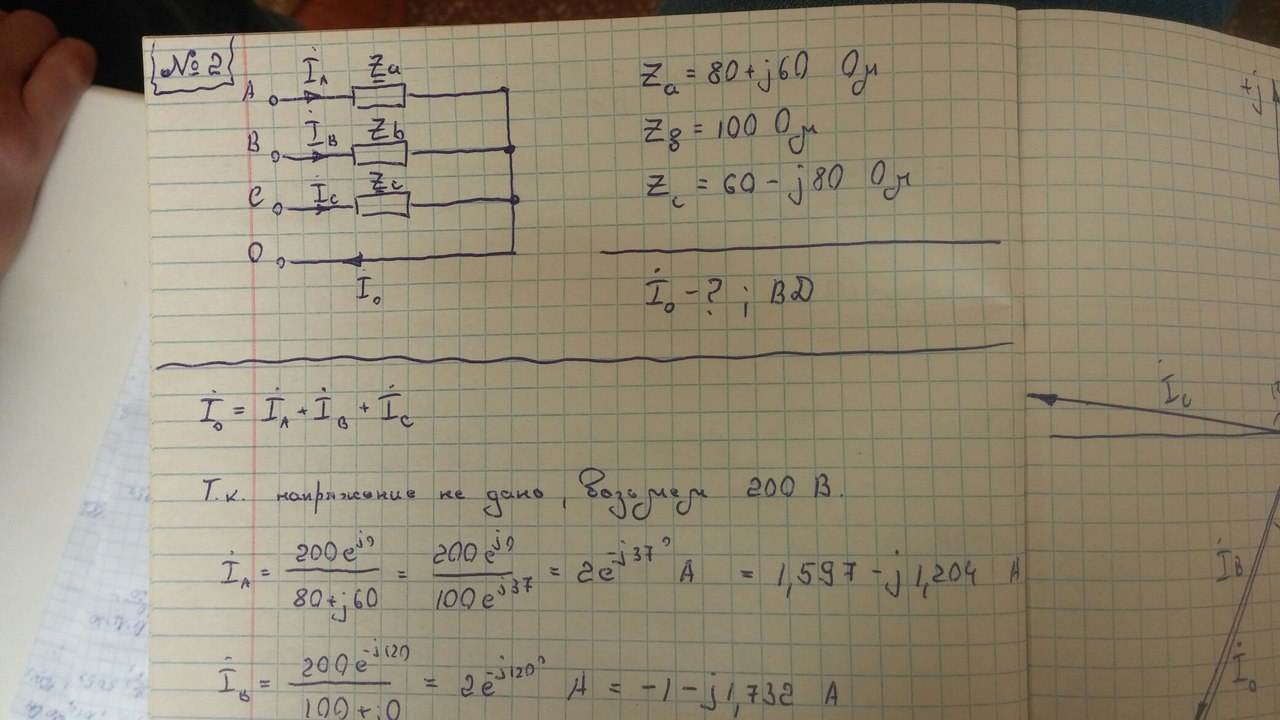 №2
A İ_A Z_a
B İ_B Z_b
C İ_C Z_c
0
İ_0
Z_a = 80+j60 Ом
Z_в = 100 Ом
Z_c = 60 - j80 Ом
İ_0 - ? ; ВД
İ_0 = İ_A + İ_B + İ_C
Т.к. напряжение не дано, возьмем 200 В.
İ_A = 200e^{j0} / 80+j60 = 200e^{j0} / 100e^{j37} = 2e^{-j37°} А = 1,597 - j1,204 А
İ_B = 200e^{-j120} / 100+j0 = 2e^{-j120°} А = -1-j1,732 А
+j
İ_C
İ_B
İ_0